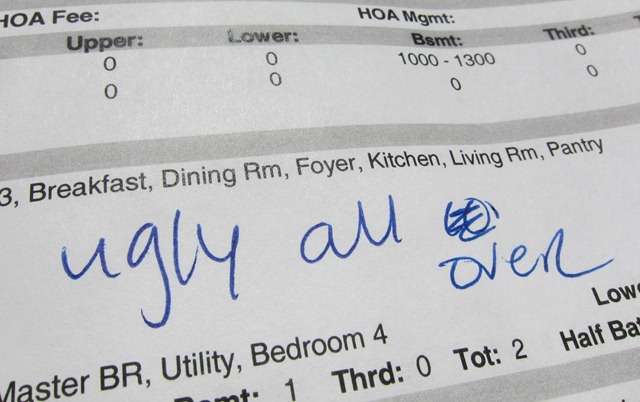 HOA Fee: HOA Mgmt:
Upper: Lower: Bsmt: Third:
0 0 1000 - 1300 0
0 0 0 0
3, Breakfast, Dining Rm, Foyer, Kitchen, Living Rm, Pantry
ugly all
over
Master BR, Utility, Bedroom 4 Lowe
Bsmt: 1 Thrd: 0 Tot: 2 Half Bat